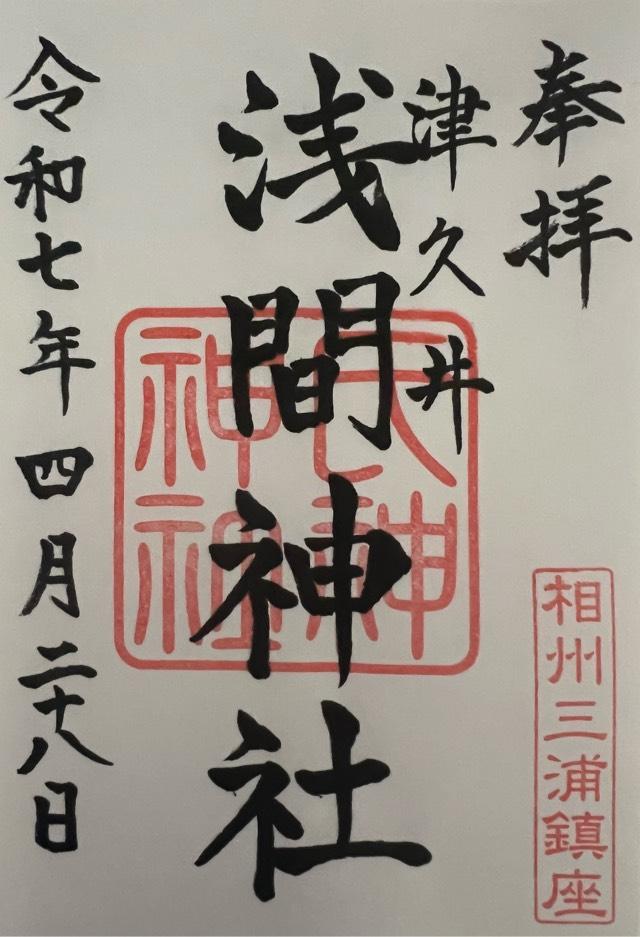 奉拝
相州三浦鎮座
津久井
浅間神社
令和七年四月二十八日